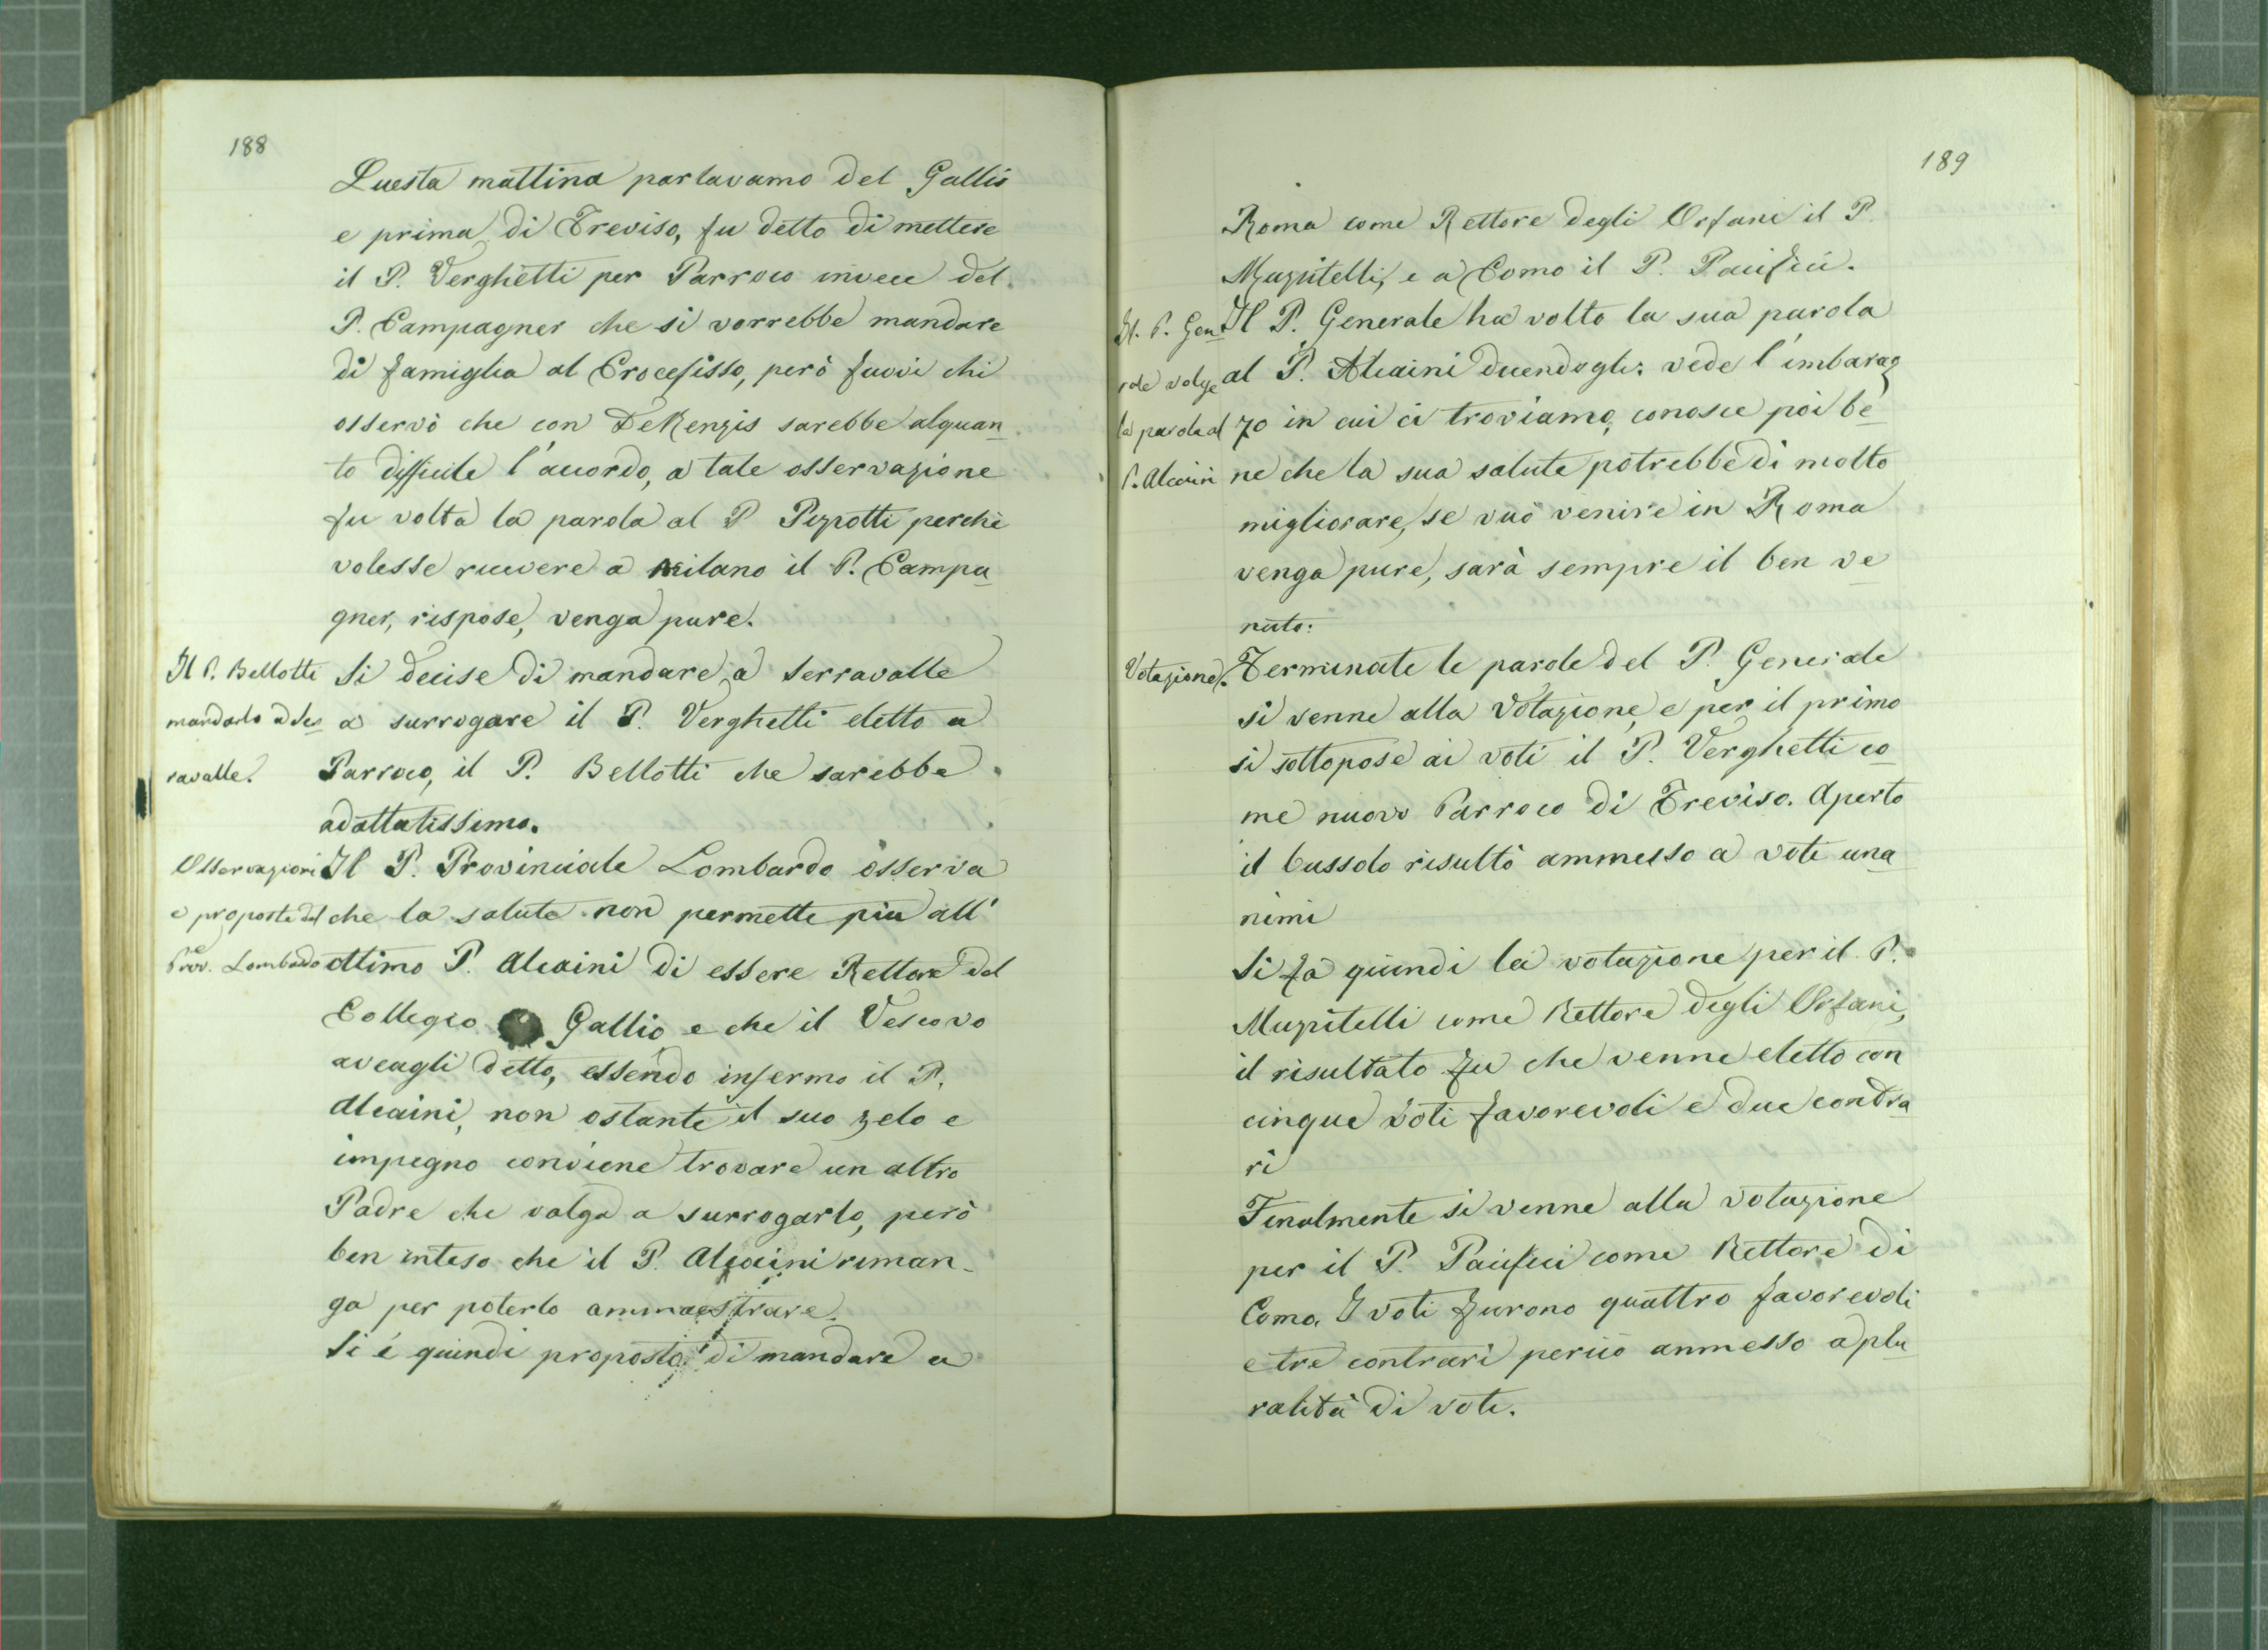 188
Questa mattina parlavamo del Gallio
e prima di Treviso, fu detto di mettere
il P. Verghetti per Parroco invece del
P. Campagner che si vorrebbe mandare
di famiglia al Crocefisso, però fuvvi chi
osservò che con DeRenzis sarebbe alquan_
to difficile l'accordo, a tale osservazione
fu volta la parola al P Pizzotti perchè
volesse ricevere a Milano il P. Campa_
gner, rispose, venga pure.
Il P. Bellotti
mandarlo a Ser_
ravalle.
Si decise di mandare a Serravalle
a surrogare il P. Verghetti eletto a
Parroco, il P. Bellotti che sarebbe
adattatissimo.
Osservazioni
e proposte del
Prov. Lombardo
Il P. Provinciale Lombardo osserva
che la salute non permette più all'
ottimo P. Alcaini di essere Rettore del
Collegio Gallio e che il Vescovo
aveagli detto, essendo infermo il P.
Alcaini, non ostante il suo zelo e
impegno conviene trovare un altro
Padre che valga a surrogarlo, però
ben inteso che il P. Alcaini riman_
ga per poterlo ammaestrare.
Si é quindi proposto di mandare a
189
Roma come Rettore degli Orfani il P.
Muzzitelli, e a Como il P. Pacifici.
Il. P. Gen_
rale volge
la parola al
P. Alcaini
Il P. Generale ha volto la sua parola
al P. Alcaini dicendogli: vede l'imbaraz_
zo in cui ci troviamo, conosce poi be_
ne che la sua salute potrebbe di molto
migliorare, se vuò venire in Roma
venga pure, sarà sempre il ben ve_
nuto.
Votazione.
Terminate le parole del P. Generale
si venne alla Votazione, e per il primo
si sottopose ai voti il P. Verghetti co_
me nuovo Parroco di Treviso. Aperto
il bussolo risultò ammesso a voti una_
nimi
Si fa quindi la votazione per il P.
Muzzitelli come Rettore degli Orfani,
il risultato fu che venne eletto con
cinque voti favorevoli e due contra_
ri
Finalmente si venne alla votazione
per il P. Pacifici come Rettore di
Como. I voti furono quattro favorevoli
e tre contrari perciò ammesso a plu_
ralità di voti.